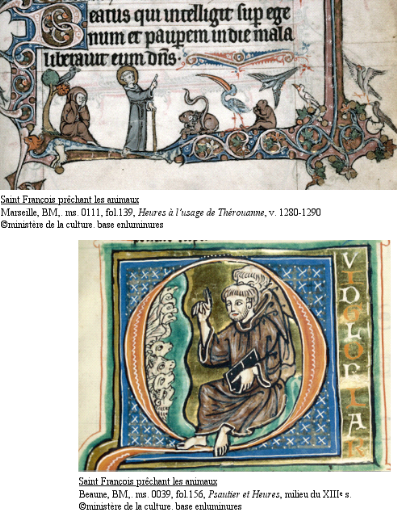 Beatus qui intelligit sup ege
num et paupem in die mala
liberauit eum dns.
Saint François prêchant les animaux
Marseille, BM,. ms. 0111, fol.139, Heures à l'usage de Thérouanne, v. 1280-1290
©ministère de la culture. base enluminures
Saint François prêchant les animaux
Beaune, BM,. ms. 0039, fol.156, Psautier et Heures, milieu du XIIIe s.
©ministère de la culture. base enluminures